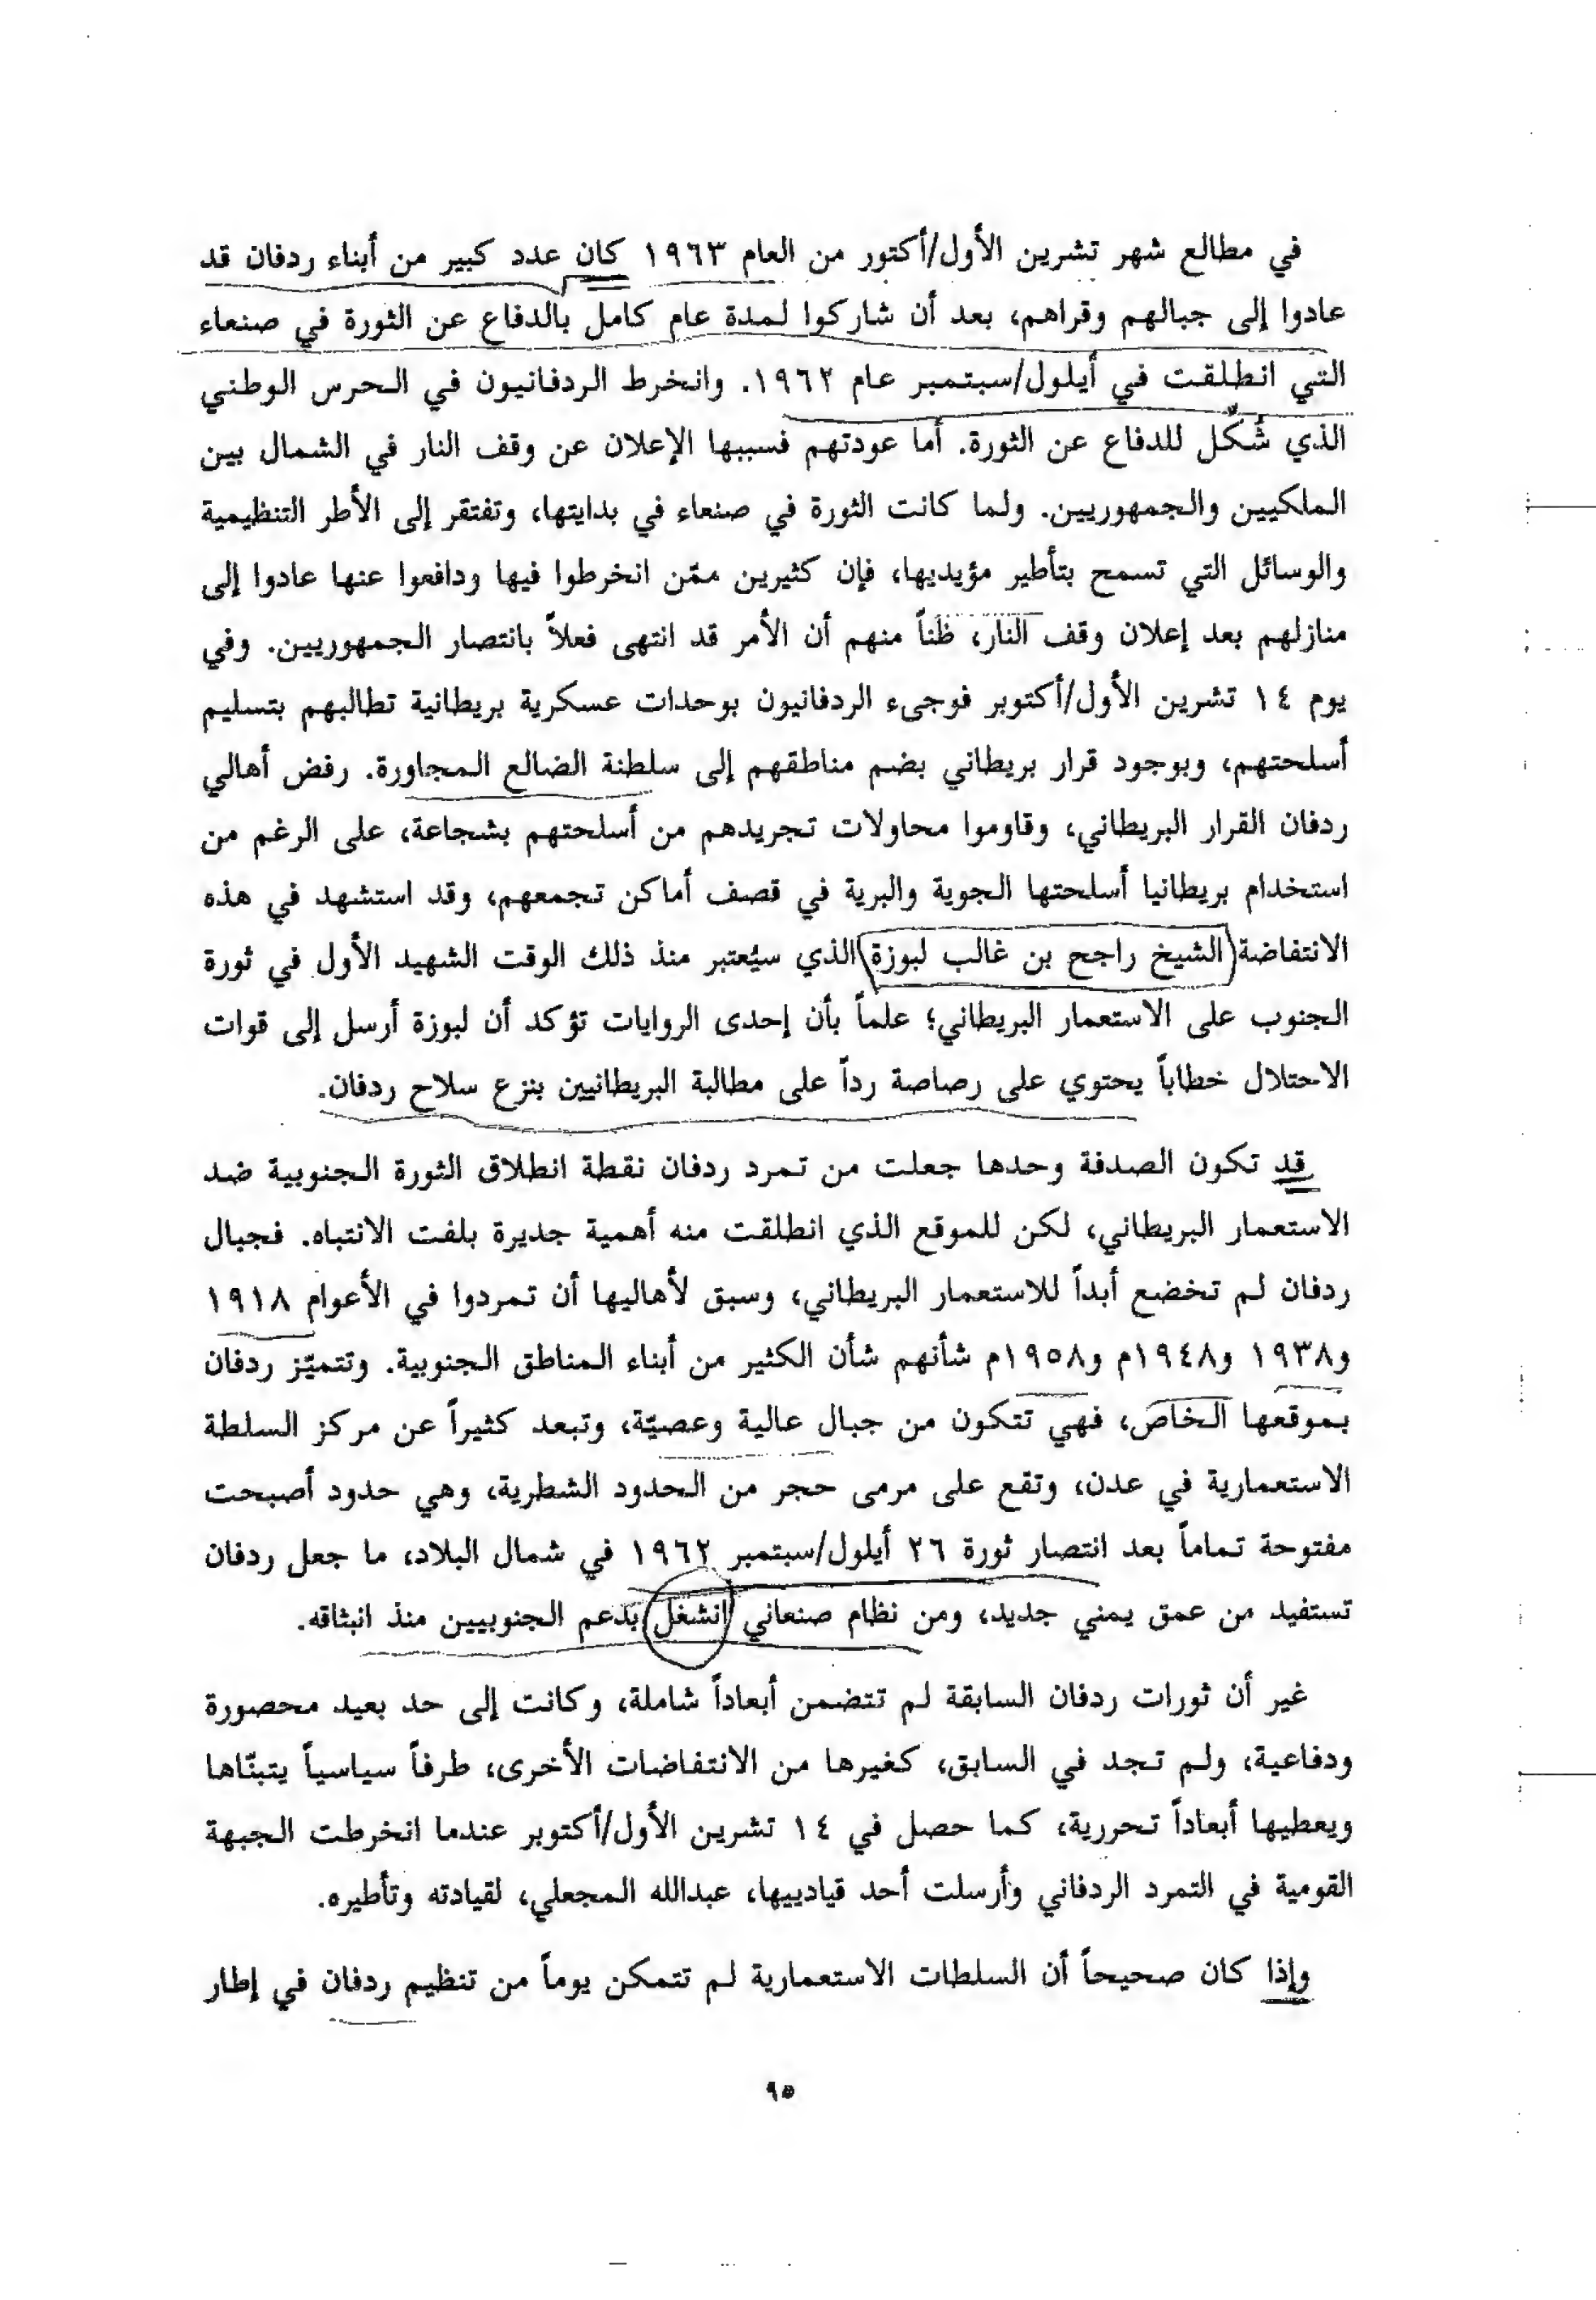 في مطالع شهر تشرين الأول/أكتور من العام ١٩٦٣ كان عدد كبير من أبناء ردفان قد
عادوا إلى جبالهم وقراهم، بعد أن شاركوا لمدة عام كامل بالدفاع عن الثورة في صنعاء
التي انطلقت في أيلول/سبتمبر عام ١٩٦٢. وانخرط الردفانيون في الحرس الوطني
الذي شُكّل للدفاع عن الثورة. أما عودتهم فسببها الإعلان عن وقف النار في الشمال بين
الملكيين والجمهوريين. ولما كانت الثورة في صنعاء في بدايتها، وتفتقر إلى الأطر التنظيمية
والوسائل التي تسمح بتأطير مؤيديها، فإن كثيرين ممّن انخرطوا فيها ودافعوا عنها عادوا إلى
منازلهم بعد إعلان وقف النار، ظناً منهم أن الأمر قد انتهى فعلاً بانتصار الجمهوريين. وفي
يوم ١٤ تشرين الأول/أكتوبر فوجىء الردفانيون بوحدات عسكرية بريطانية تطالبهم بتسليم
أسلحتهم، وبوجود قرار بريطاني بضم مناطقهم إلى سلطنة الضالع المجاورة. رفض أهالي
ردفان القرار البريطاني، وقاوموا محاولات تجريدهم من أسلحتهم بشجاعة، على الرغم من
استخدام بريطانيا أسلحتها الجوية والبرية في قصف أماكن تجمعهم، وقد استشهد في هذه
الانتفاضة (الشيخ راجح بن غالب لبوزة) الذي سيُعتبر منذ ذلك الوقت الشهيد الأول في ثورة
الجنوب على الاستعمار البريطاني؛ علماً بأن إحدى الروايات تؤكد أن لبوزة أرسل إلى قوات
الاحتلال خطاباً يحتوي على رصاصة رداً على مطالبة البريطانيين بنزع سلاح ردفان.
قد تكون الصدفة وحدها جعلت من تمرد ردفان نقطة انطلاق الثورة الجنوبية ضد
الاستعمار البريطاني، لكن للموقع الذي انطلقت منه أهمية جديرة بلفت الانتباه. فجبال
ردفان لم تخضع أبداً للاستعمار البريطاني، وسبق لأهاليها أن تمردوا في الأعوام ١٩١٨
و١٩٣٨ و١٩٤٨م و١٩٥٨م شأنهم شأن الكثير من أبناء المناطق الجنوبية. وتتميّز ردفان
بموقعها الخاص، فهي تتكون من جبال عالية وعصيّة، وتبعد كثيراً عن مركز السلطة
الاستعمارية في عدن، وتقع على مرمى حجر من الحدود الشطرية، وهي حدود أصبحت
مفتوحة تماماً بعد انتصار ثورة ٢٦ أيلول/سبتمبر ١٩٦٢ في شمال البلاد، ما جعل ردفان
تستفيد من عمق يمني جديد، ومن نظام صنعاني انشغل بدعم الجنوبيين منذ انبثاقه.
غير أن ثورات ردفان السابقة لم تتضمن أبعاداً شاملة، وكانت إلى حد بعيد محصورة
ودفاعية، ولم تجد في السابق، كغيرها من الانتفاضات الأخرى، طرفاً سياسياً يتبنّاها
ويعطيها أبعاداً تحررية، كما حصل في ١٤ تشرين الأول/أكتوبر عندما انخرطت الجبهة
القومية في التمرد الردفاني وأرسلت أحد قيادييها، عبدالله المجعلي، لقيادته وتأطيره.
وإذا كان صحيحاً أن السلطات الاستعمارية لم تتمكن يوماً من تنظيم ردفان في إطار
٩٥